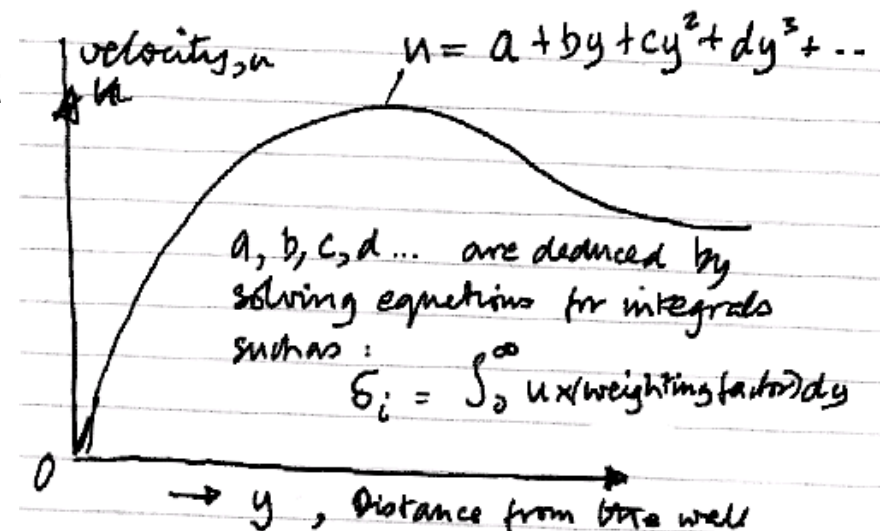 velocity, u
u = a + by + cy² + dy³ + ..
u
a, b, c, d ... are deduced by
solving equations for integrals
such as :
δᵢ = ∫₀^∞ u x (weighting factor) dy
0
→ y , Distance from the wall